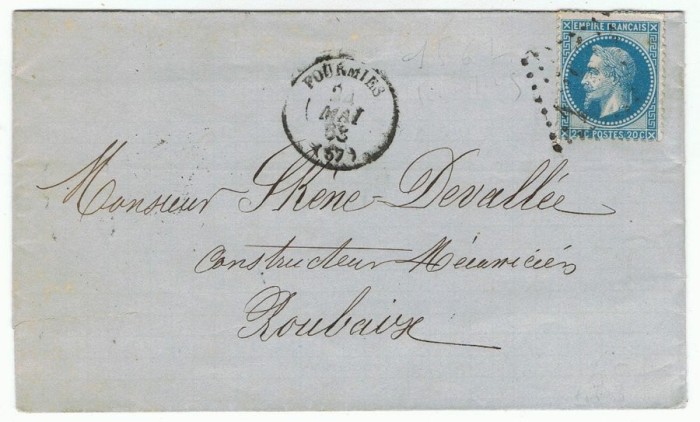 EMPIRE FRANÇAIS
20 C POSTES 20 C
FOURMIES
MAI
68
(57)
Monsieur Skene-Devallée
Constructeur Mécanicién
Roubaix